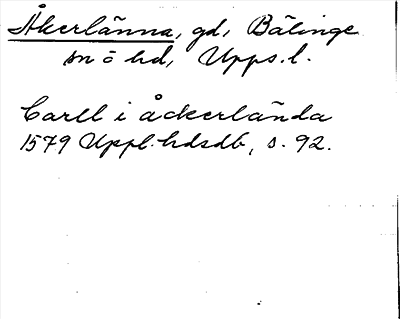 Åkerlänna, gd, Bälinge
sn o hd, Upps. l.
Carll i åckerlända
1579 Uppl. hdsdb, s. 92.